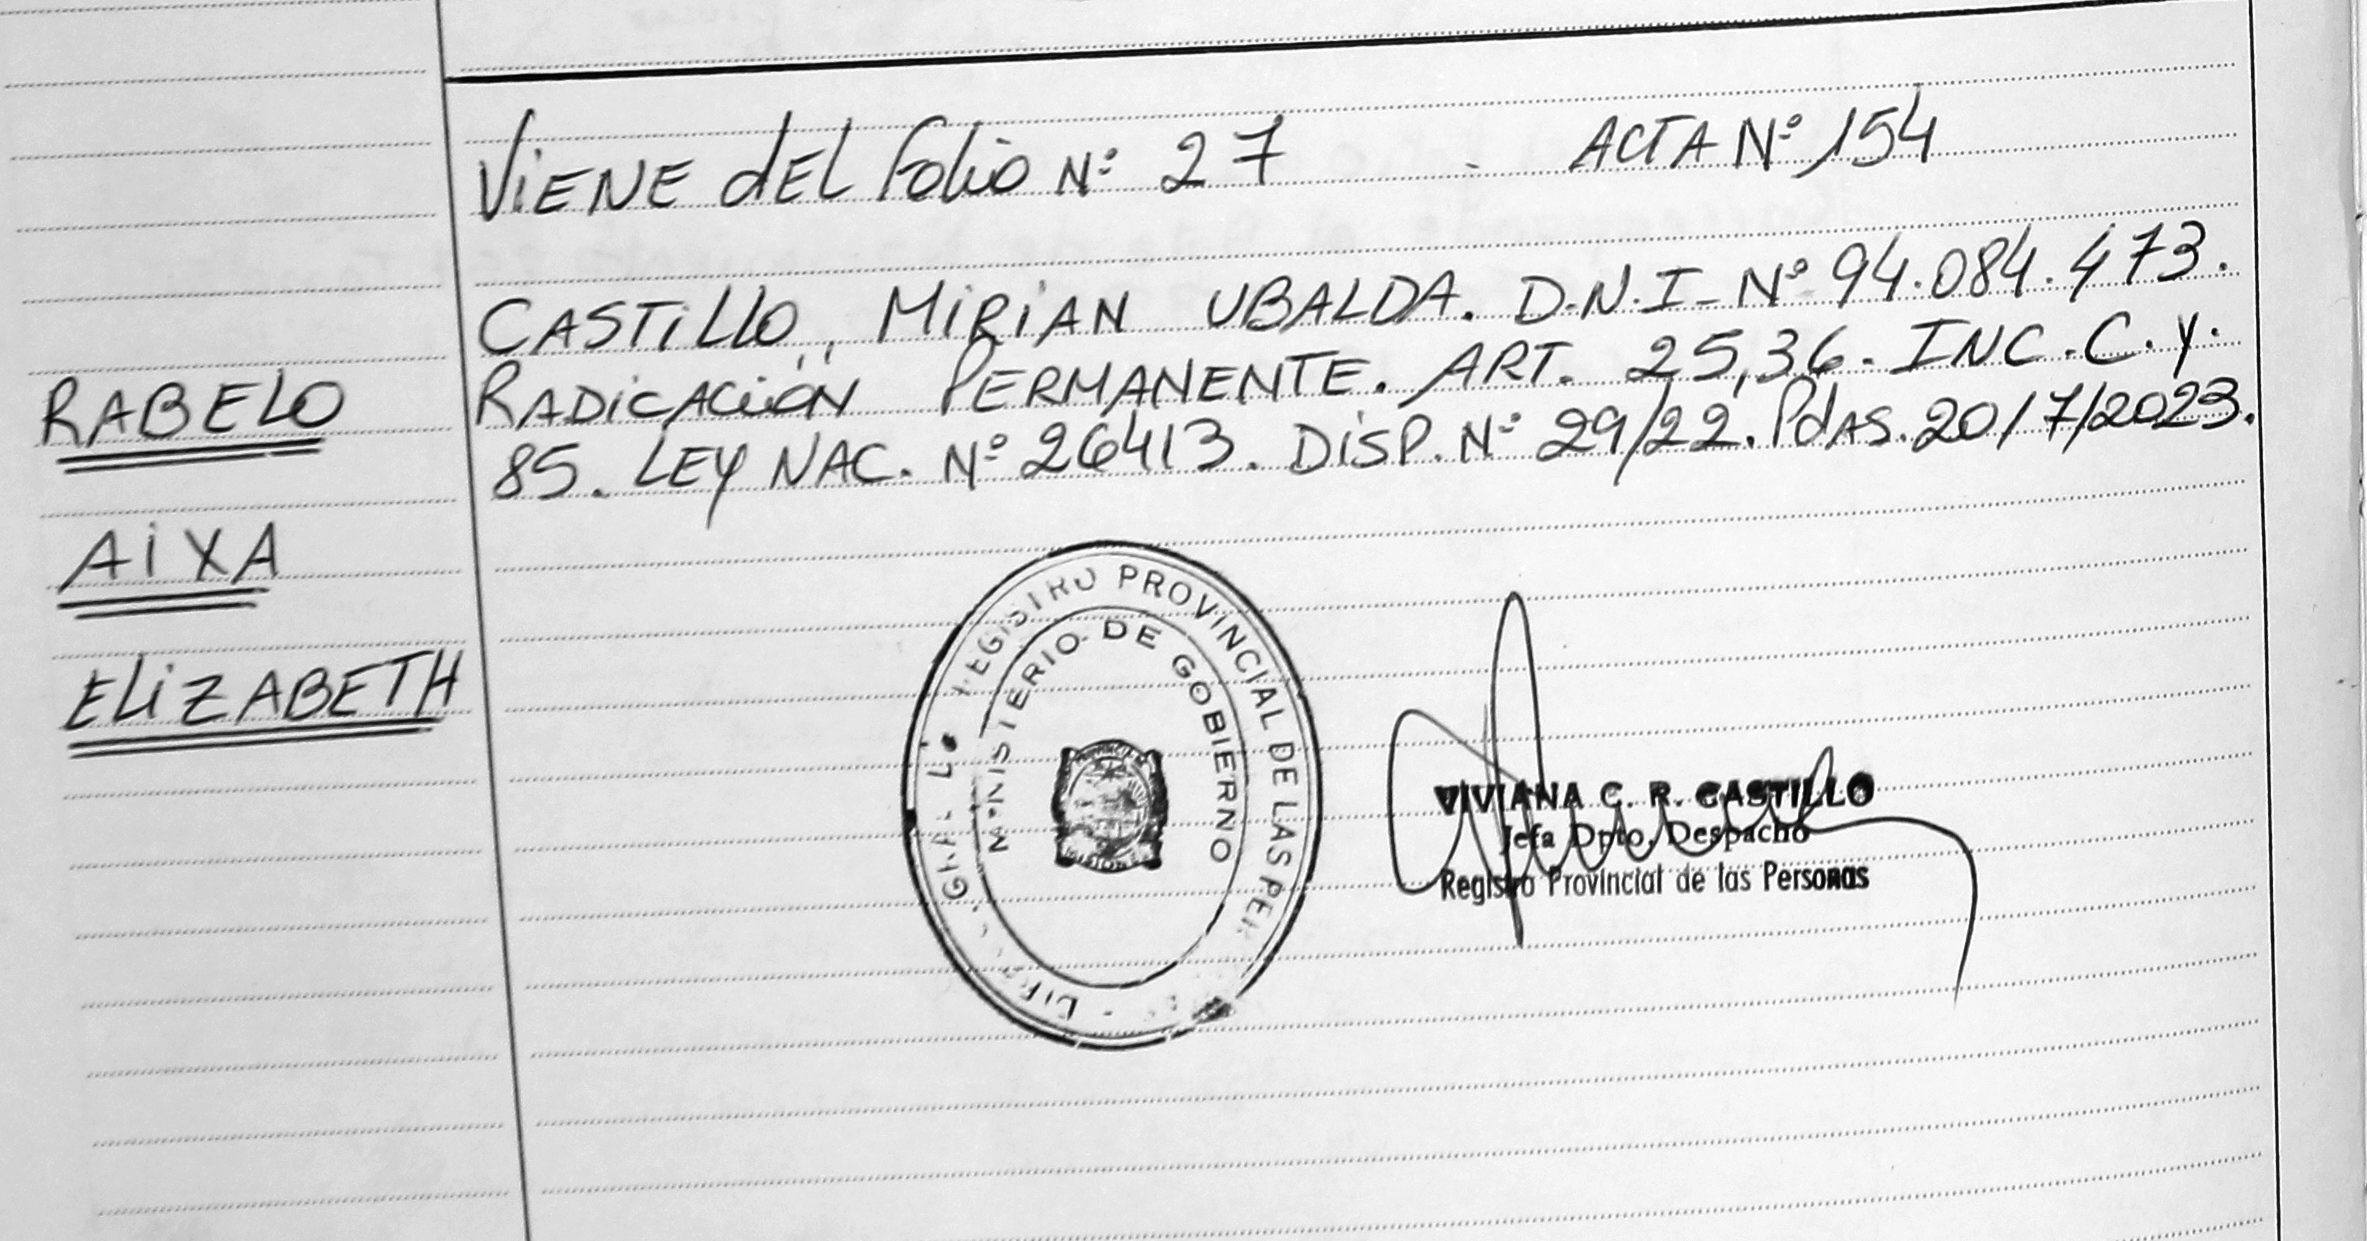 Viene del Folio Nº 27 - ACTA Nº 154
CASTILLO, MIRIAN UBALDA. D.N.I- Nº 94.084.473.
RADICACIÓN PERMANENTE. ART. 25,36. INC. C. Y.
85. LEY NAC. Nº 26413. DISP. Nº 29/22. Pdas. 20/7/2023.
RABELO
AIXA
ELIZABETH
REGISTRO PROVINCIAL DE LAS PER
MINISTERIO DE GOBIERNO
MISIONES
VIVIANA C. R. CASTILLO
Jefa Dpto. Despacho
Registro Provincial de las Personas